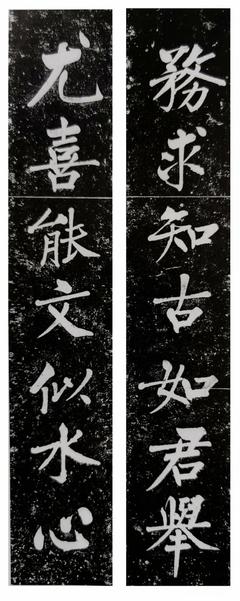 務求知古如君舉
尤喜能文似水心